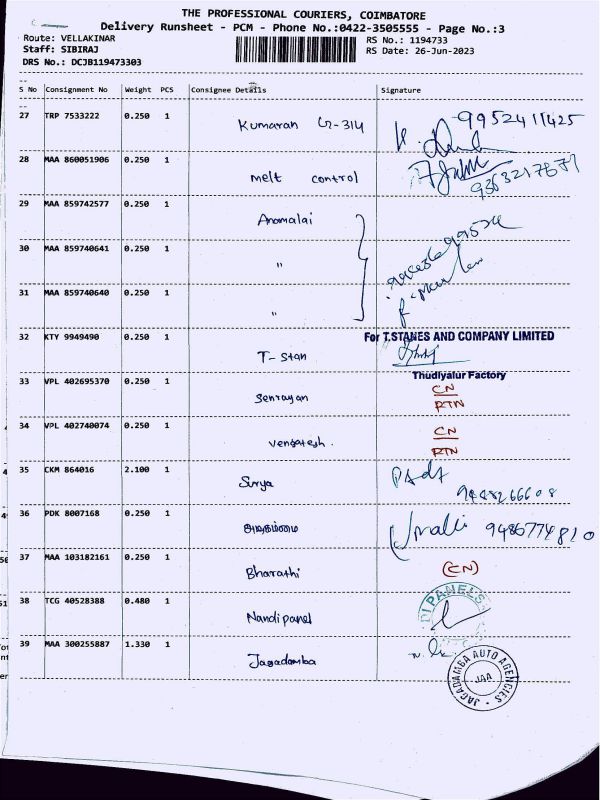 THE PROFESSIONAL COURIERS, COIMBATORE
Delivery Runsheet - PCM - Phone No.:0422-3505555 - Page No.:3
Route: VELLAKINAR RS No.: 1194733
Staff: SIBIRAJ RS Date: 26-Jun-2023
DRS No.: DCJB119473303
S No Consignment No Weight PCS Consignee Details Signature
27 TRP 7533222 0.250 1 Kumaran G-314 9952411425
28 MAA 860051906 0.250 1 melt control
29 MAA 859742577 0.250 1 Anamalai
30 MAA 859740641 0.250 1 "
31 MAA 859740640 0.250 1 "
32 KTY 9949490 0.250 1 T-Stan For T.STANES AND COMPANY LIMITED
Thudiyalur Factory
33 VPL 402695370 0.250 1 Senrayan CN
RTN
34 VPL 402740074 0.250 1 Vengatesh. CN
RTN
35 CKM 864016 2.100 1 Surya
36 PDK 8007168 0.250 1 9486774810
37 MAA 103182161 0.250 1 Bharathi (CN)
38 TCG 40528388 0.480 1 Nandi panel DI PANELS
39 MAA 300255887 1.330 1 Jagadamba
JAGADAMBA AUTO AGENCIES
JAA